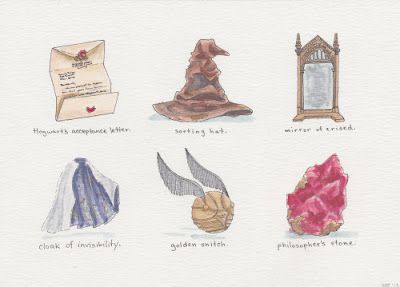 Hogwarts acceptance letter.
sorting hat.
mirror of erised.
cloak of invisibility.
golden snitch.
philosopher's stone.